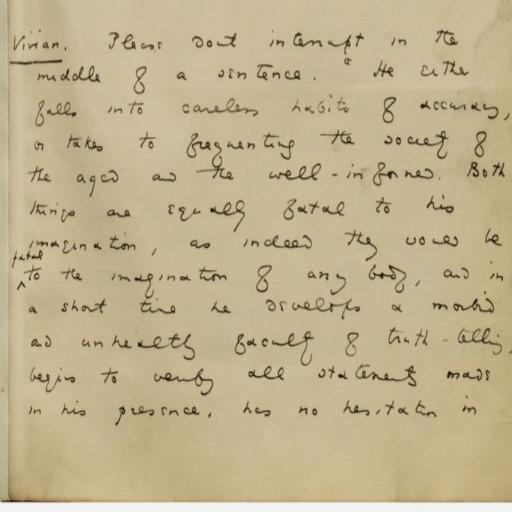 Vivian. Please dont interrupt in the
middle of a sentence. " He either
falls into careless habits of accuracy,
or takes to frequenting the society of
the aged and the well-informed. Both
things are equally fatal to his
imagination, as indeed they would be
fatal
to the imagination of any body, and in
a short time he develops a morbid
and unhealthy faculty of truth-telling,
begins to verify all statements made
in his presence, has no hesitation in